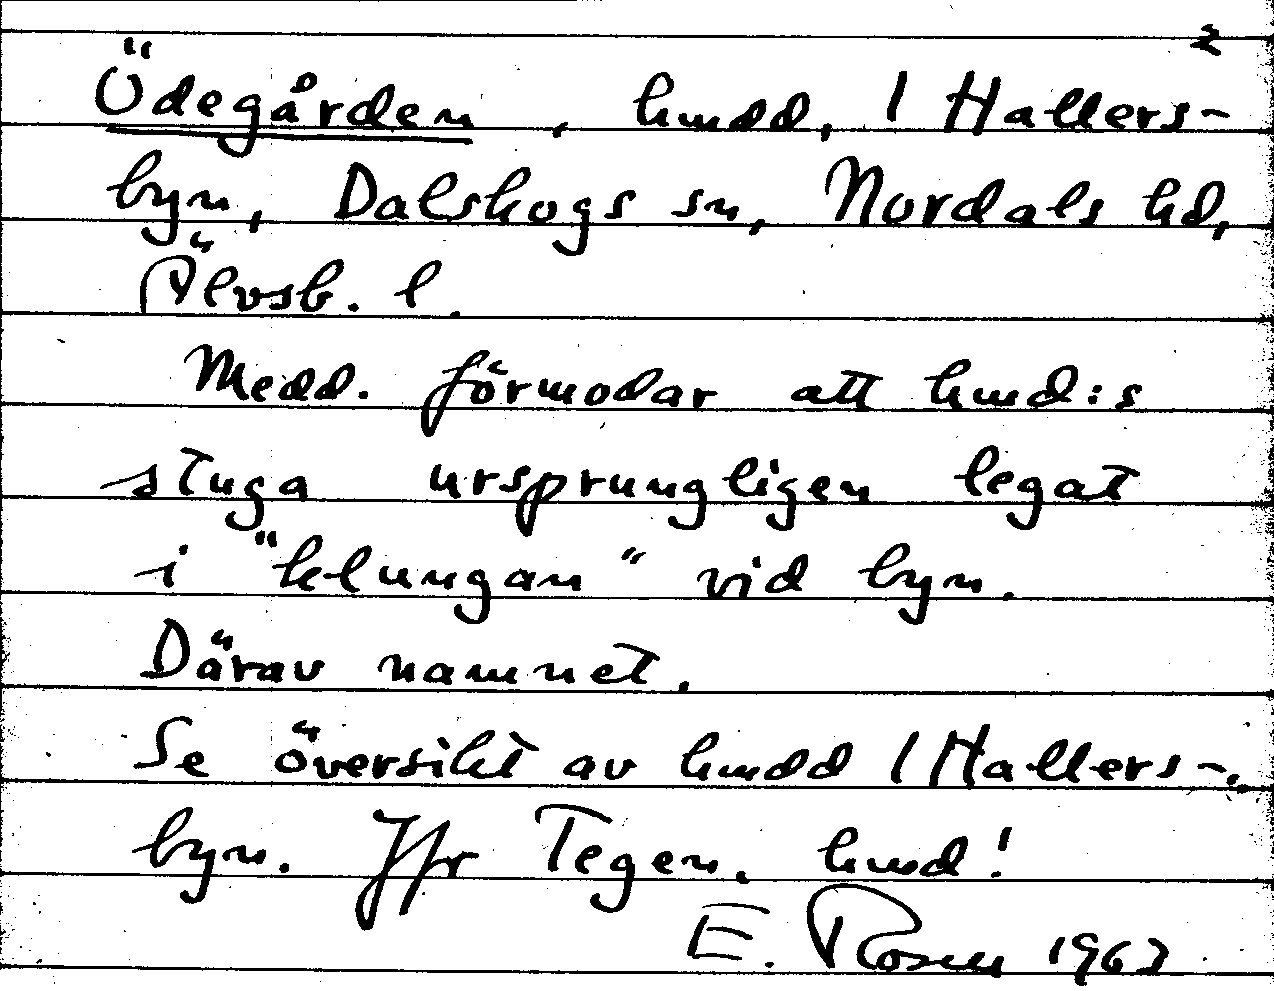 2
Ödegården, hmdd, 1 Hallers-
byn, Dalskogs sn, Nordals hd,
Älvsb. l.
Medd. förmodar att hmd:s
stuga ursprungligen legat
i "klungan" vid byn.
Därav namnet.
Se översikt av hmdd 1 Hallers-
byn. Jfr Tegen, hmd!
E. Rosell 1963